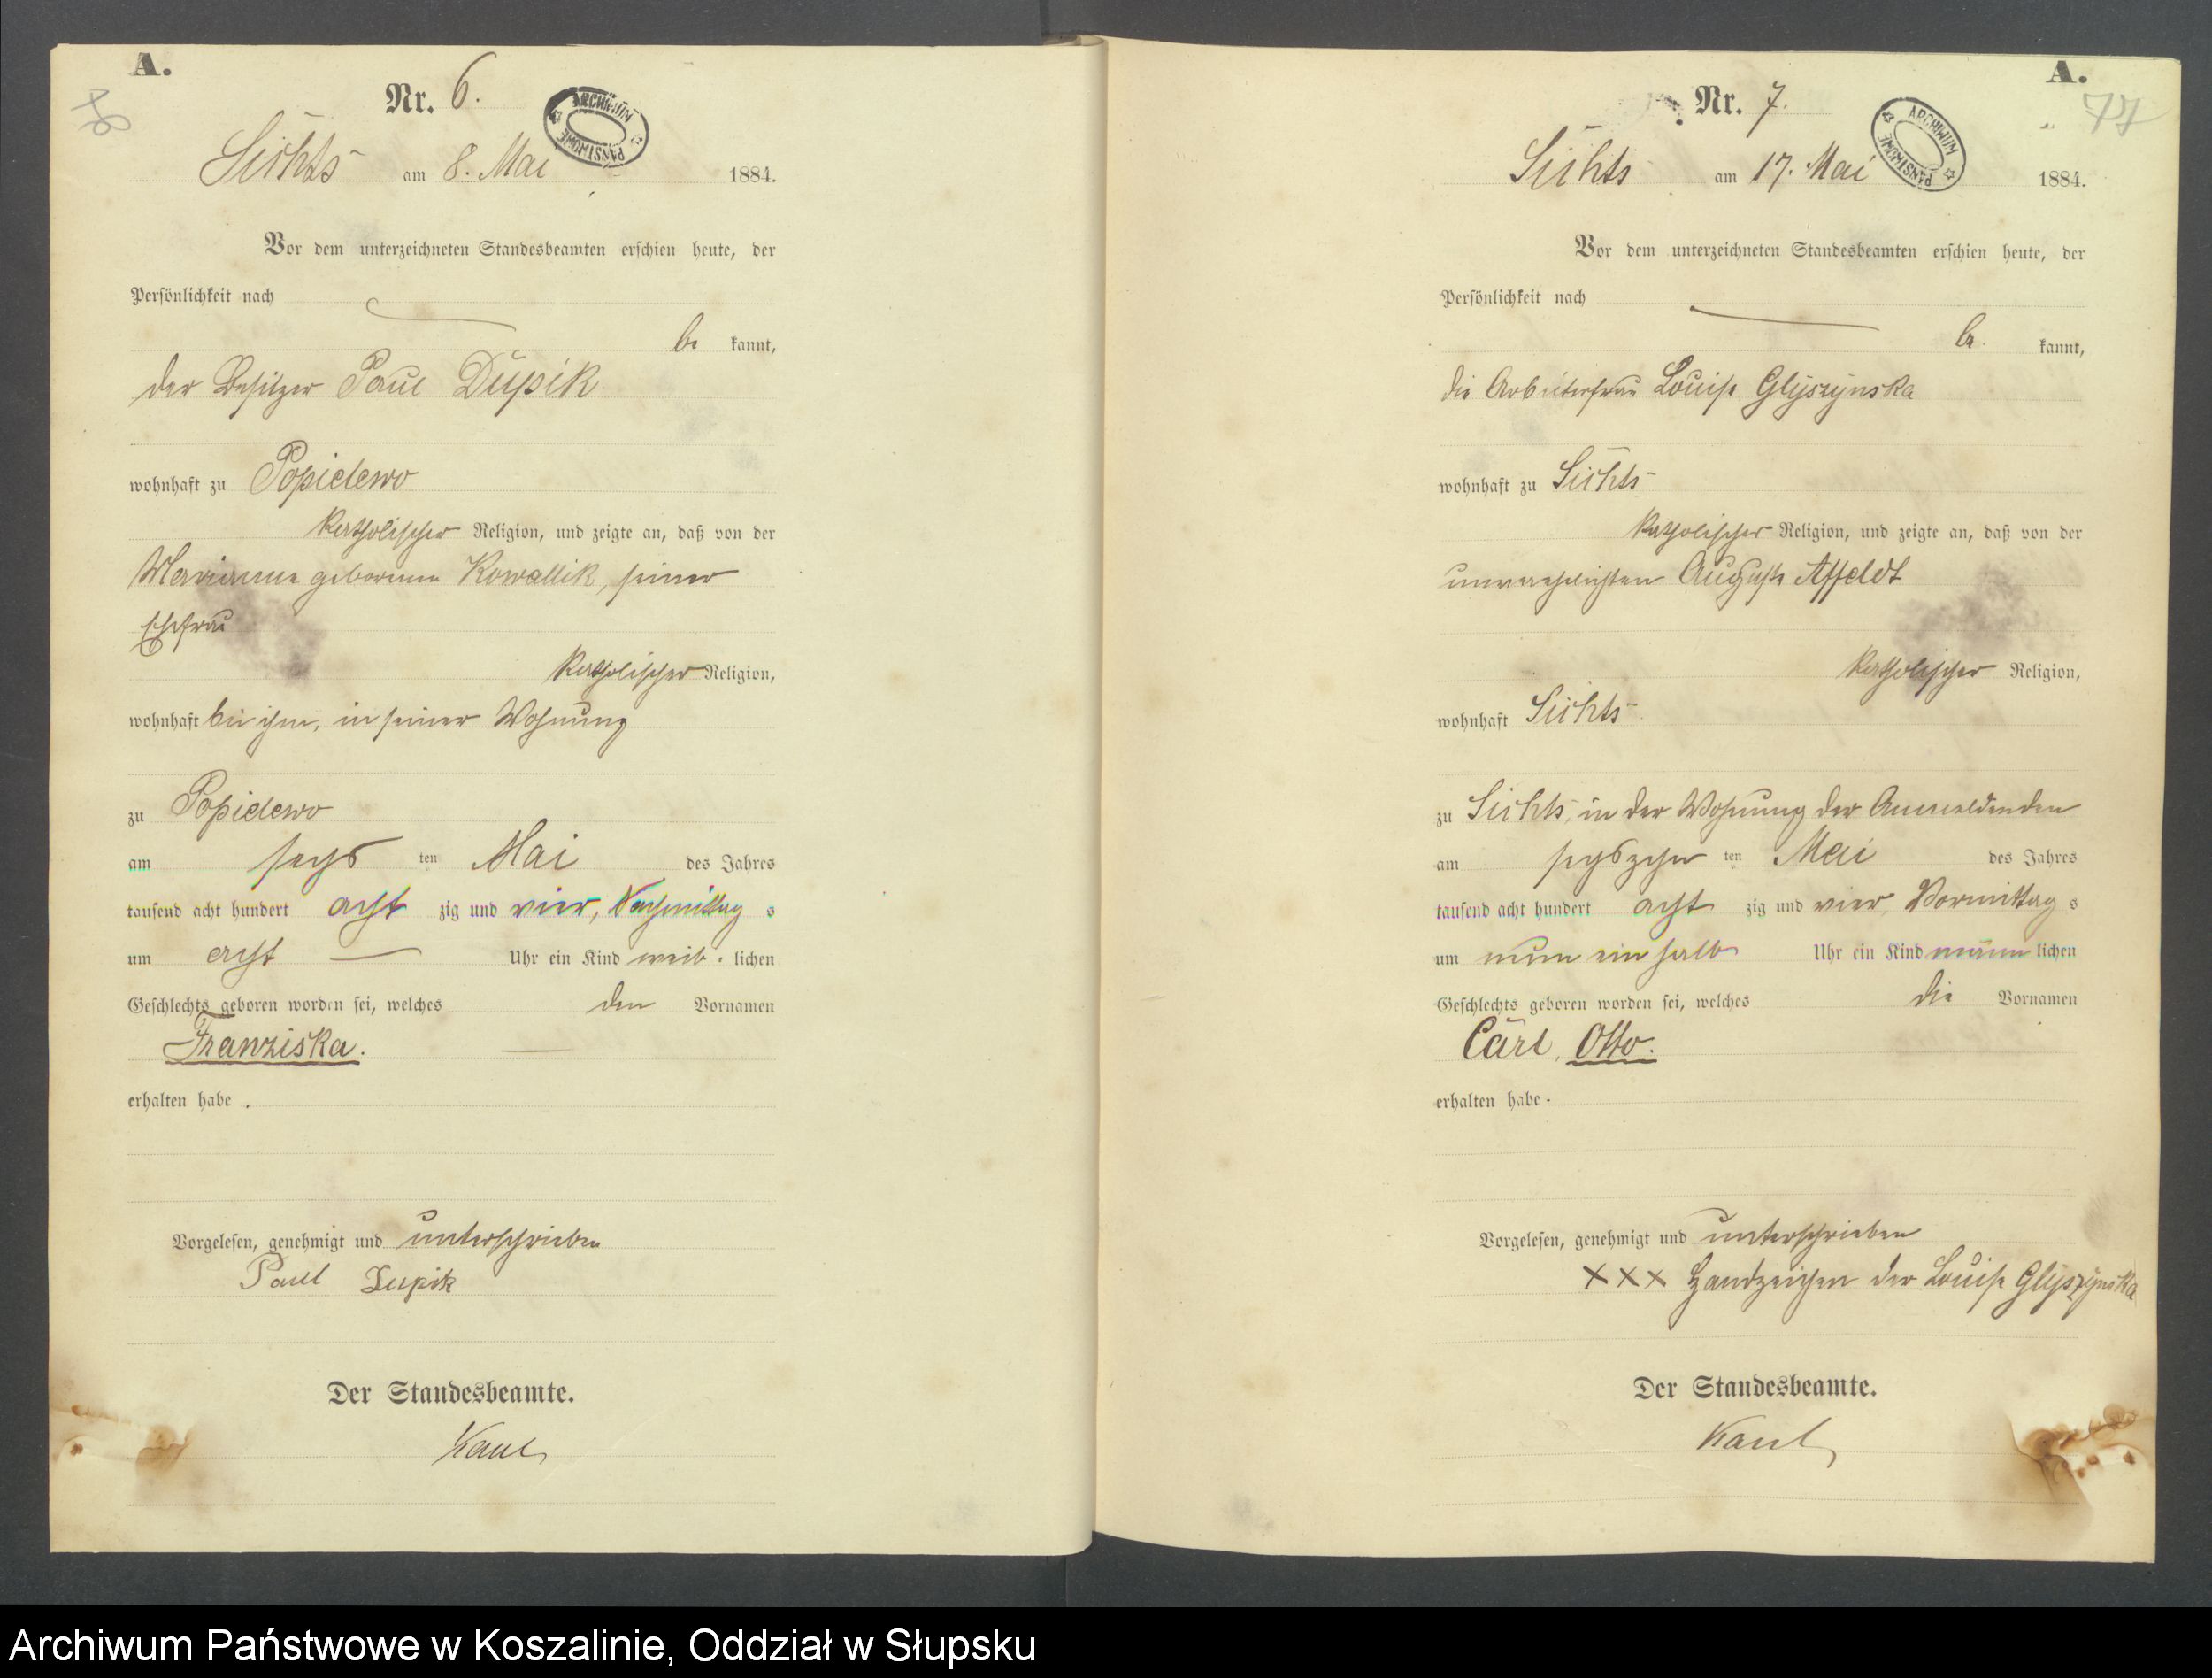 A.
Nr. 6.
ARCHIWUM PAŃSTWOWE
Lichts am 8. Mai 1884.
Vor dem unterzeichneten Standesbeamten erschien heute, der
Persönlichkeit nach
be kannt,
der Besitzer Paul Dupik
wohnhaft zu Popielewo
katholischer Religion, und zeigte an, daß von der
Marianna geborenen Kowallik, seiner
Ehefrau
katholischer Religion,
wohnhaft bei ihm, in seiner Wohnung
zu Popielewo
am sechs ten Mai des Jahres
tausend acht hundert acht zig und vier, Nachmittag s
um acht Uhr ein Kind weib lichen
Geschlechts geboren worden sei, welches den Vornamen
Franziska.
erhalten habe.
Vorgelesen, genehmigt und unterschrieben
Paul Dupik
Der Standesbeamte.
A.
77
Nr. 7.
ARCHIWUM PAŃSTWOWE
am 17. Mai 1884.
Vor dem unterzeichneten Standesbeamten erschien heute, der
Persönlichkeit nach
be kannt,
die Arbeiterfrau Louise Glyszynska
wohnhaft zu
katholischer Religion, und zeigte an, daß von der
unverehelichten Auguste Affeldt
katholischer Religion,
wohnhaft
zu in der Wohnung der Anmeldenden
am sechszehn ten Mai des Jahres
tausend acht hundert acht zig und vier, Vormittag s
um neun ein halb Uhr ein Kind männ lichen
Geschlechts geboren worden sei, welches die Vornamen
Carl, Otto.
erhalten habe.
Vorgelesen, genehmigt und unterschrieben
XXX Handzeichen der Louise Glyszynska
Der Standesbeamte.
Archiwum Państwowe w Koszalinie, Oddział w Słupsku